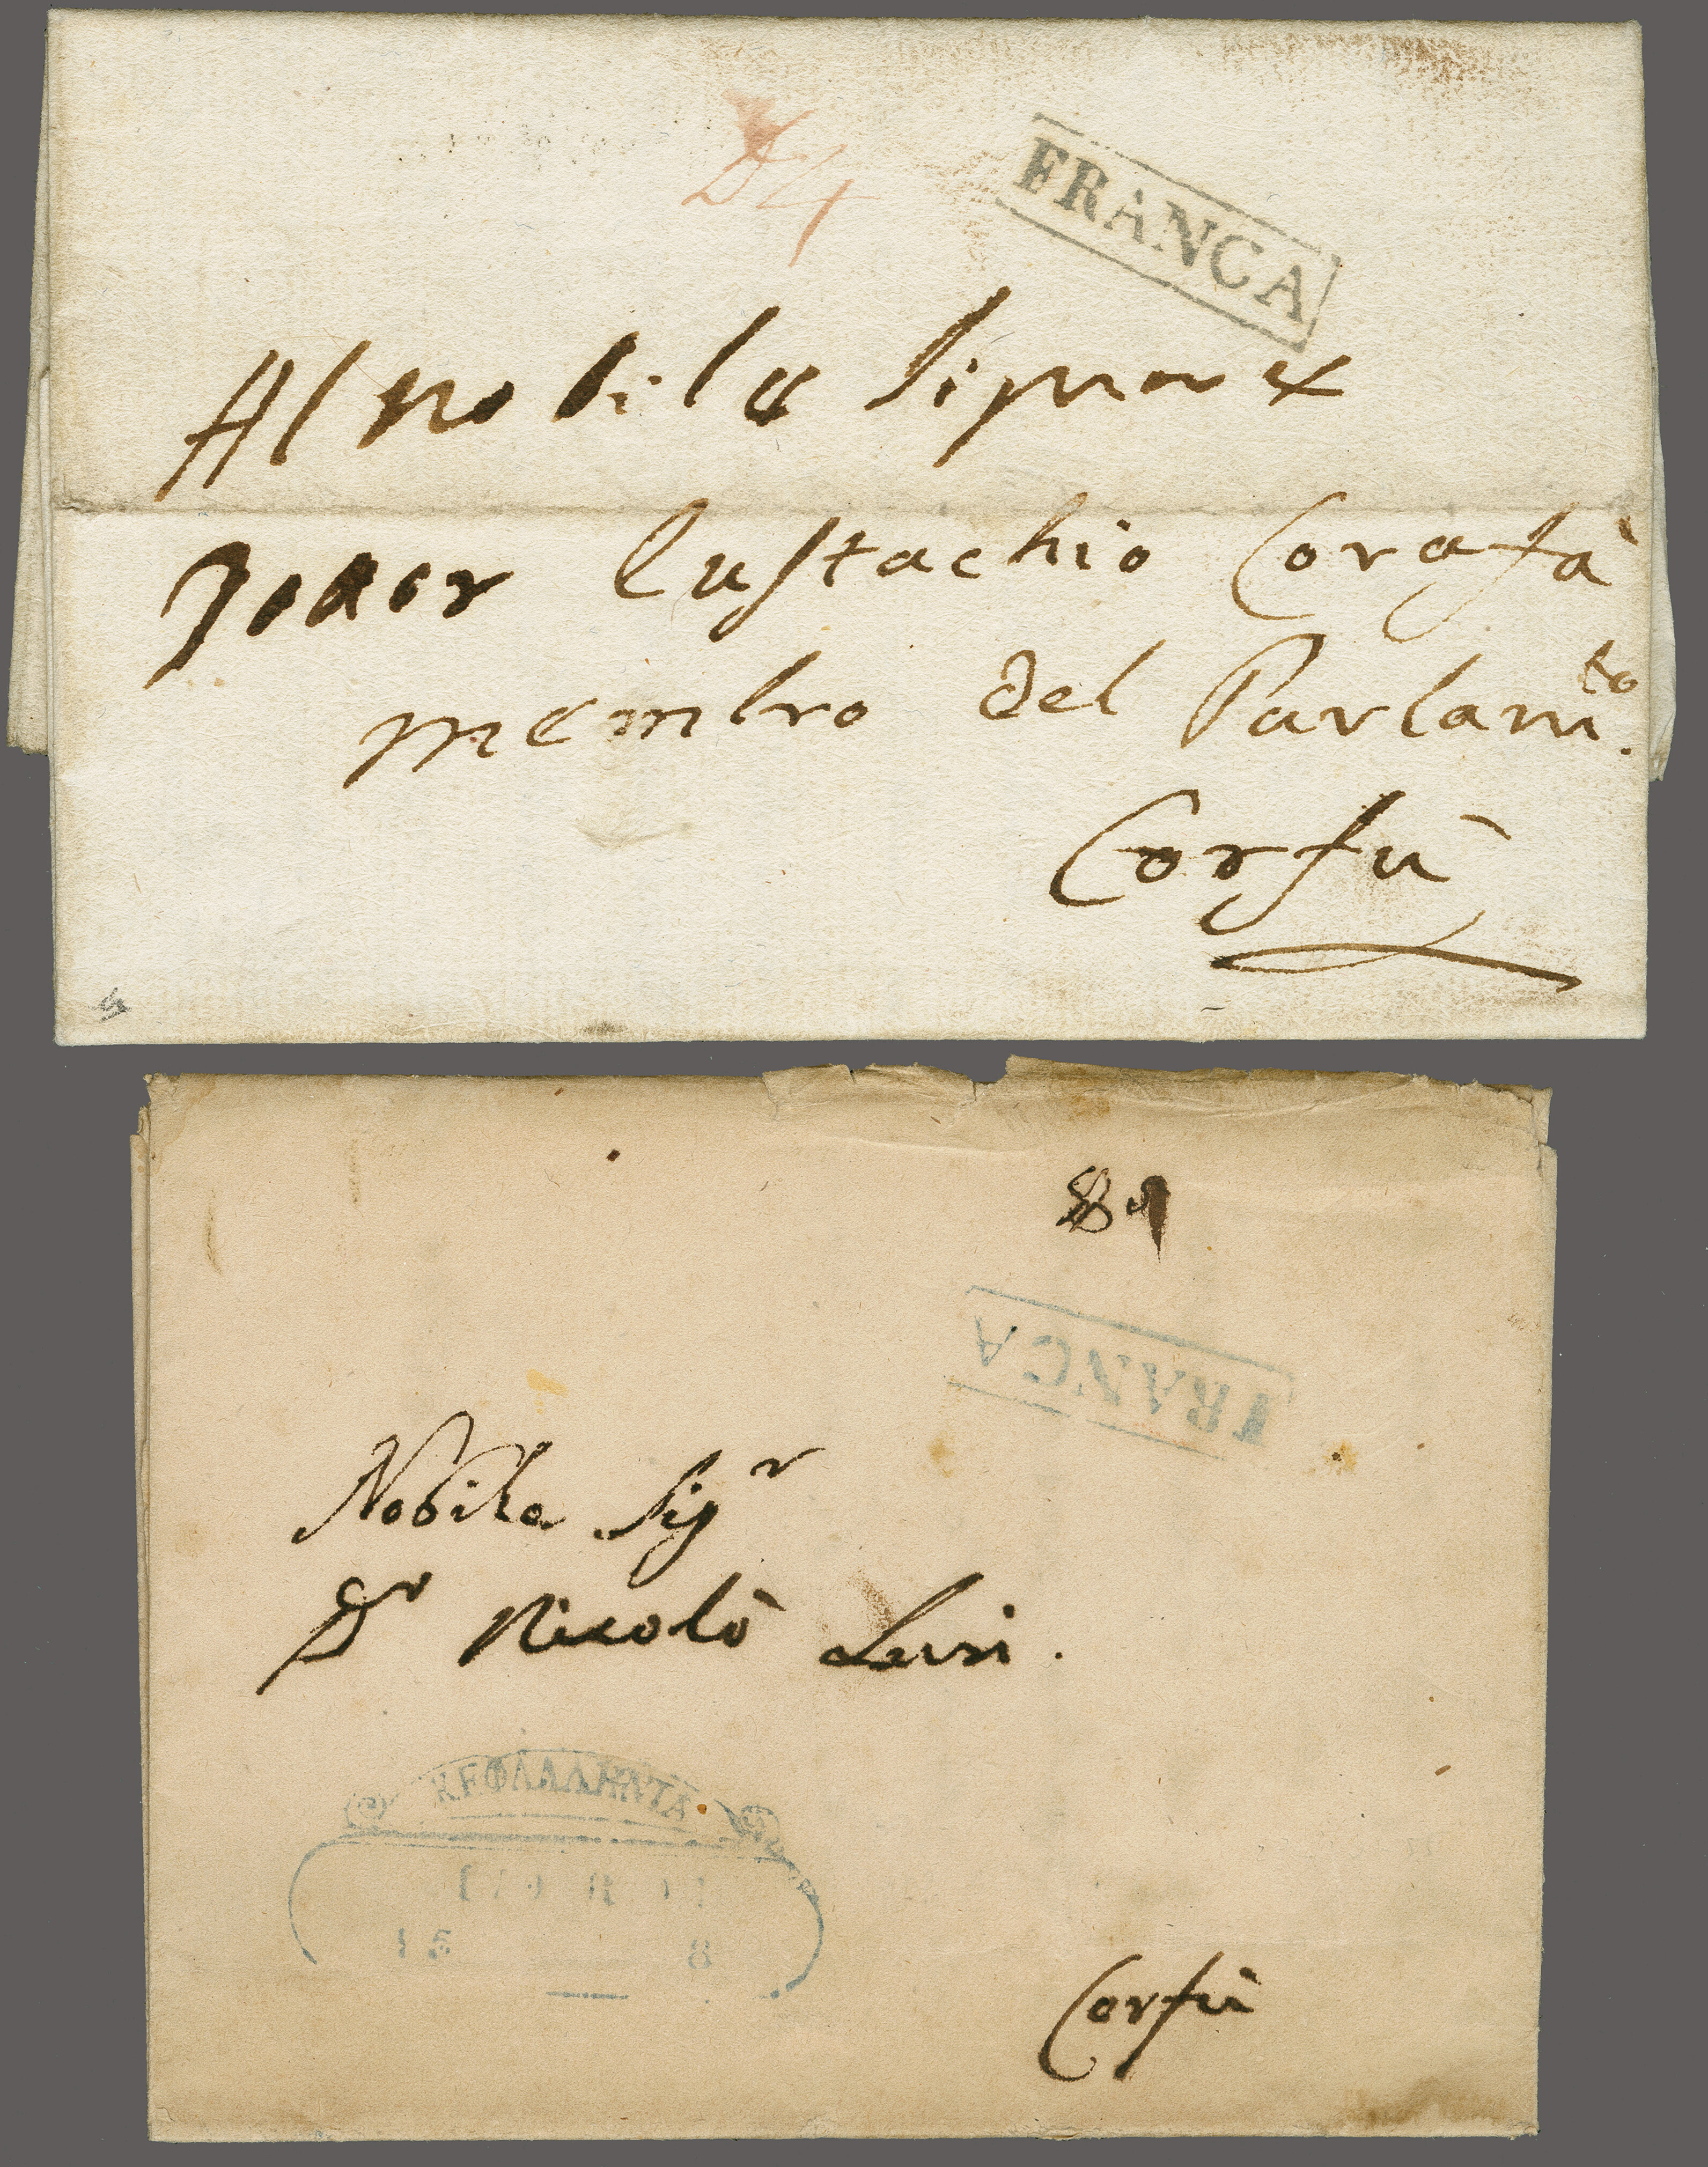 FRANCA
Al nobile Signore
Eustachio Corafà
membro del Parlam.to
Corfù
FRANCA
Nobile Sigr
Dr Nicolò
ΚΕΦΑΛΛΗΝΙΑ
Corfù